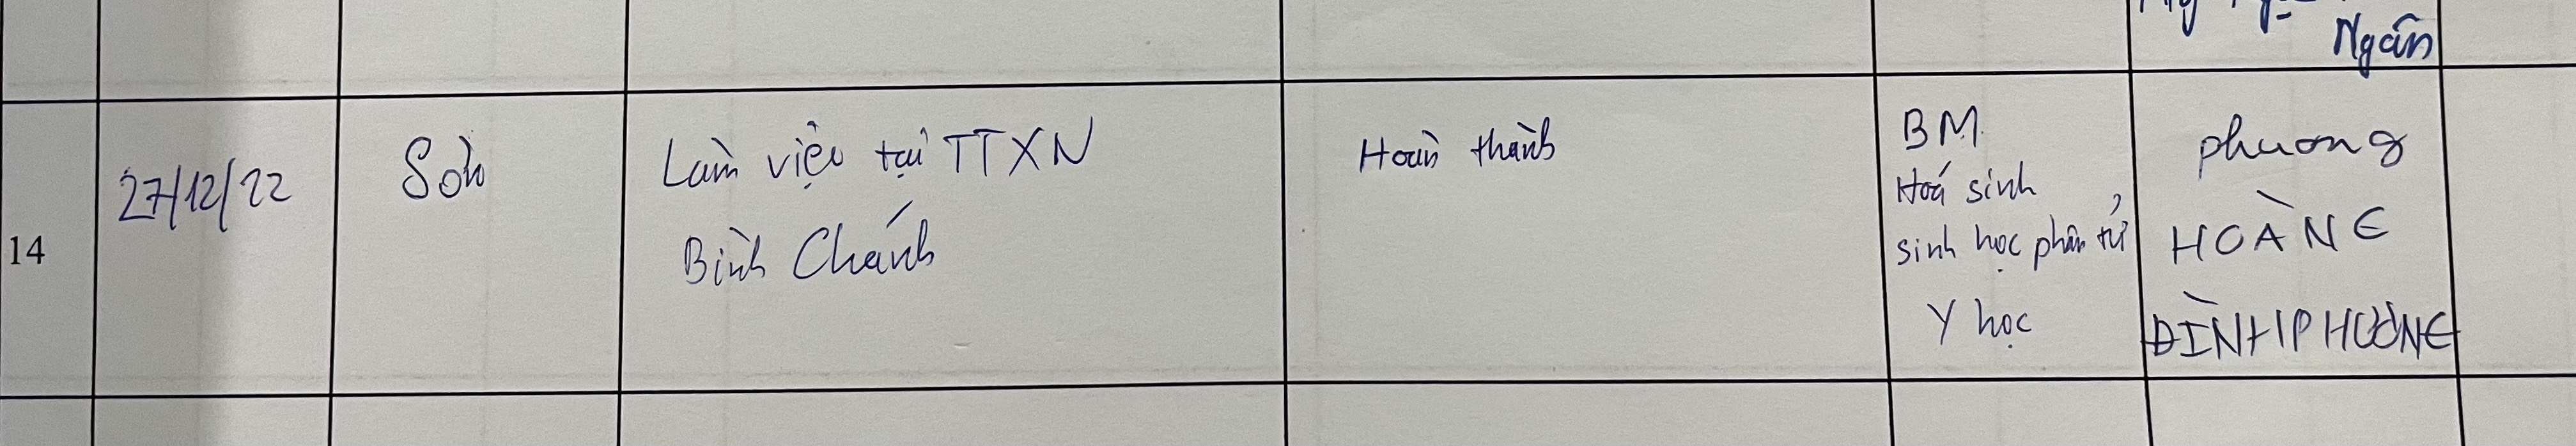 Ngân
14
27/12/22
Sơn
Làm việc tại TTXN
Bình Chánh
Hoàn thành
BM
Hoá sinh
sinh học phân tử
Y học
phuong
HOÀNG
ĐÌNH PHƯƠNG